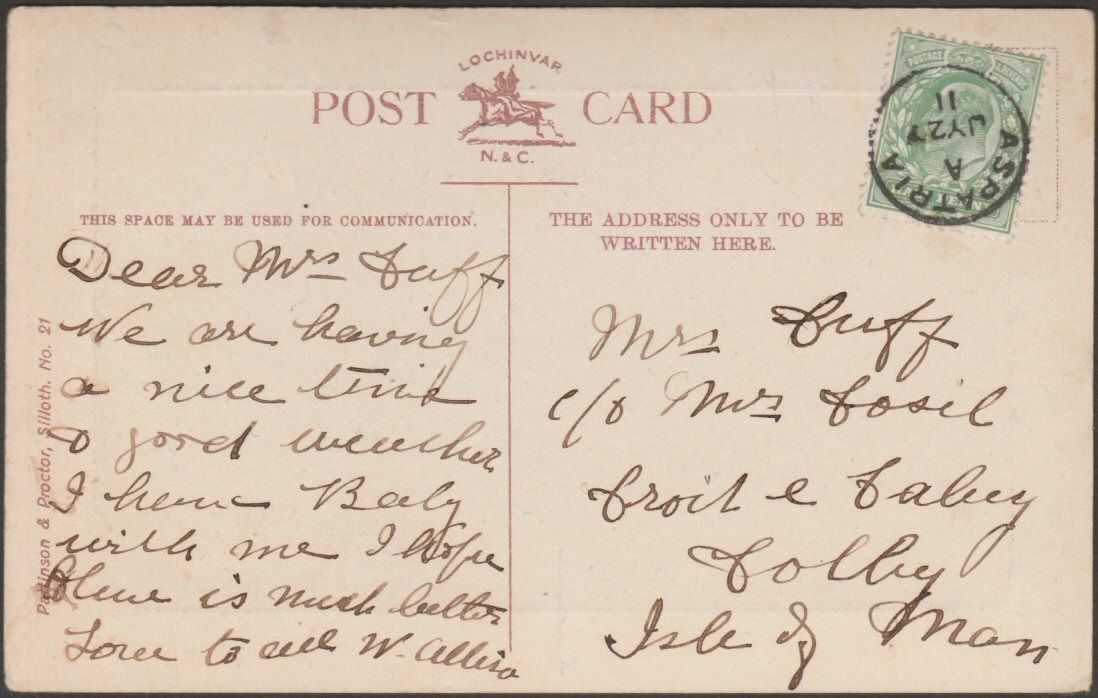 LOCHINVAR
POST CARD
N. & C.
POSTAGE
ASPATRIA
A
JY 27
11
THIS SPACE MAY BE USED FOR COMMUNICATION.
THE ADDRESS ONLY TO BE
WRITTEN HERE.
Pattinson & Proctor, Silloth. No. 21
Dear Mrs Cuff
We are having
a nice time
& good weather
I have Baby
with me I hope
is much better
Love to all W. Allison
Mrs Cuff
c/o Mrs
Croit e Caley
Colby
Isle of Man